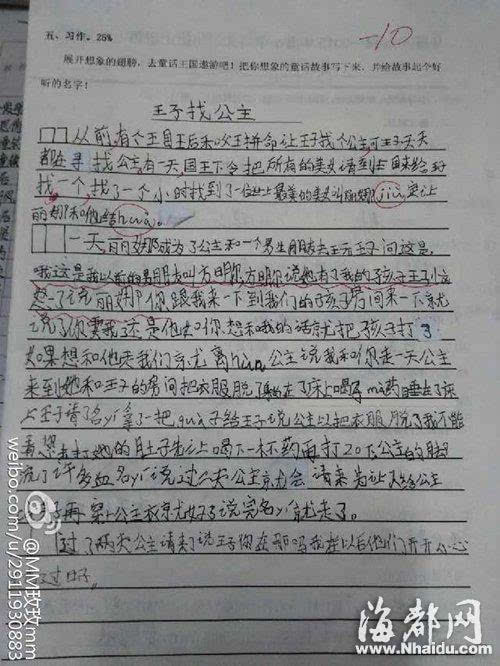 五、习作。25%
-10
展开想象的翅膀，去童话王国遨游吧！把你想象的童话故事写下来，并给故事起个好
听的名字！
王子找公主
从前,有个王国王后和国王拼命让王子找个公主可王子天天
都在寻找公主,有一天国王下令把所有的美女请到
找一个,找了一个小时找到了一位世上最美的美女叫丽娜,jiù 让
丽娜和他结hūn。
一天,丽娜成为了公主和一个男生朋友去玩王子问这是,
哦这是我以前的男朋友叫方明,方明你说她有了我的孩子王子
了说丽娜你跟我来一下到我们的孩子房间来一下就
说了你要我这是他和你,想和我的话就把孩子打了
如果想和他 我们就离hūn公主说我和你走一天公主
来到她和王子的房间把衣服脱了 在了床上喝 药睡在了床
上王子请名yī拿了一把 子给王子说公主以把衣服脱了我不能
看 去打她的肚子先让喝下一杯药再打20下公主的脚
流了许多血名yī说过 天公主就会 请来 给公主
再穿上公主衣就好了说完名yī就走了。
过了两天公主 来了说王子你在哪吗我在以后他们开开心心
过日子。
weibo.com/u/2911930883
@MM玫玫mm
海都网
www.Nhaidu.com